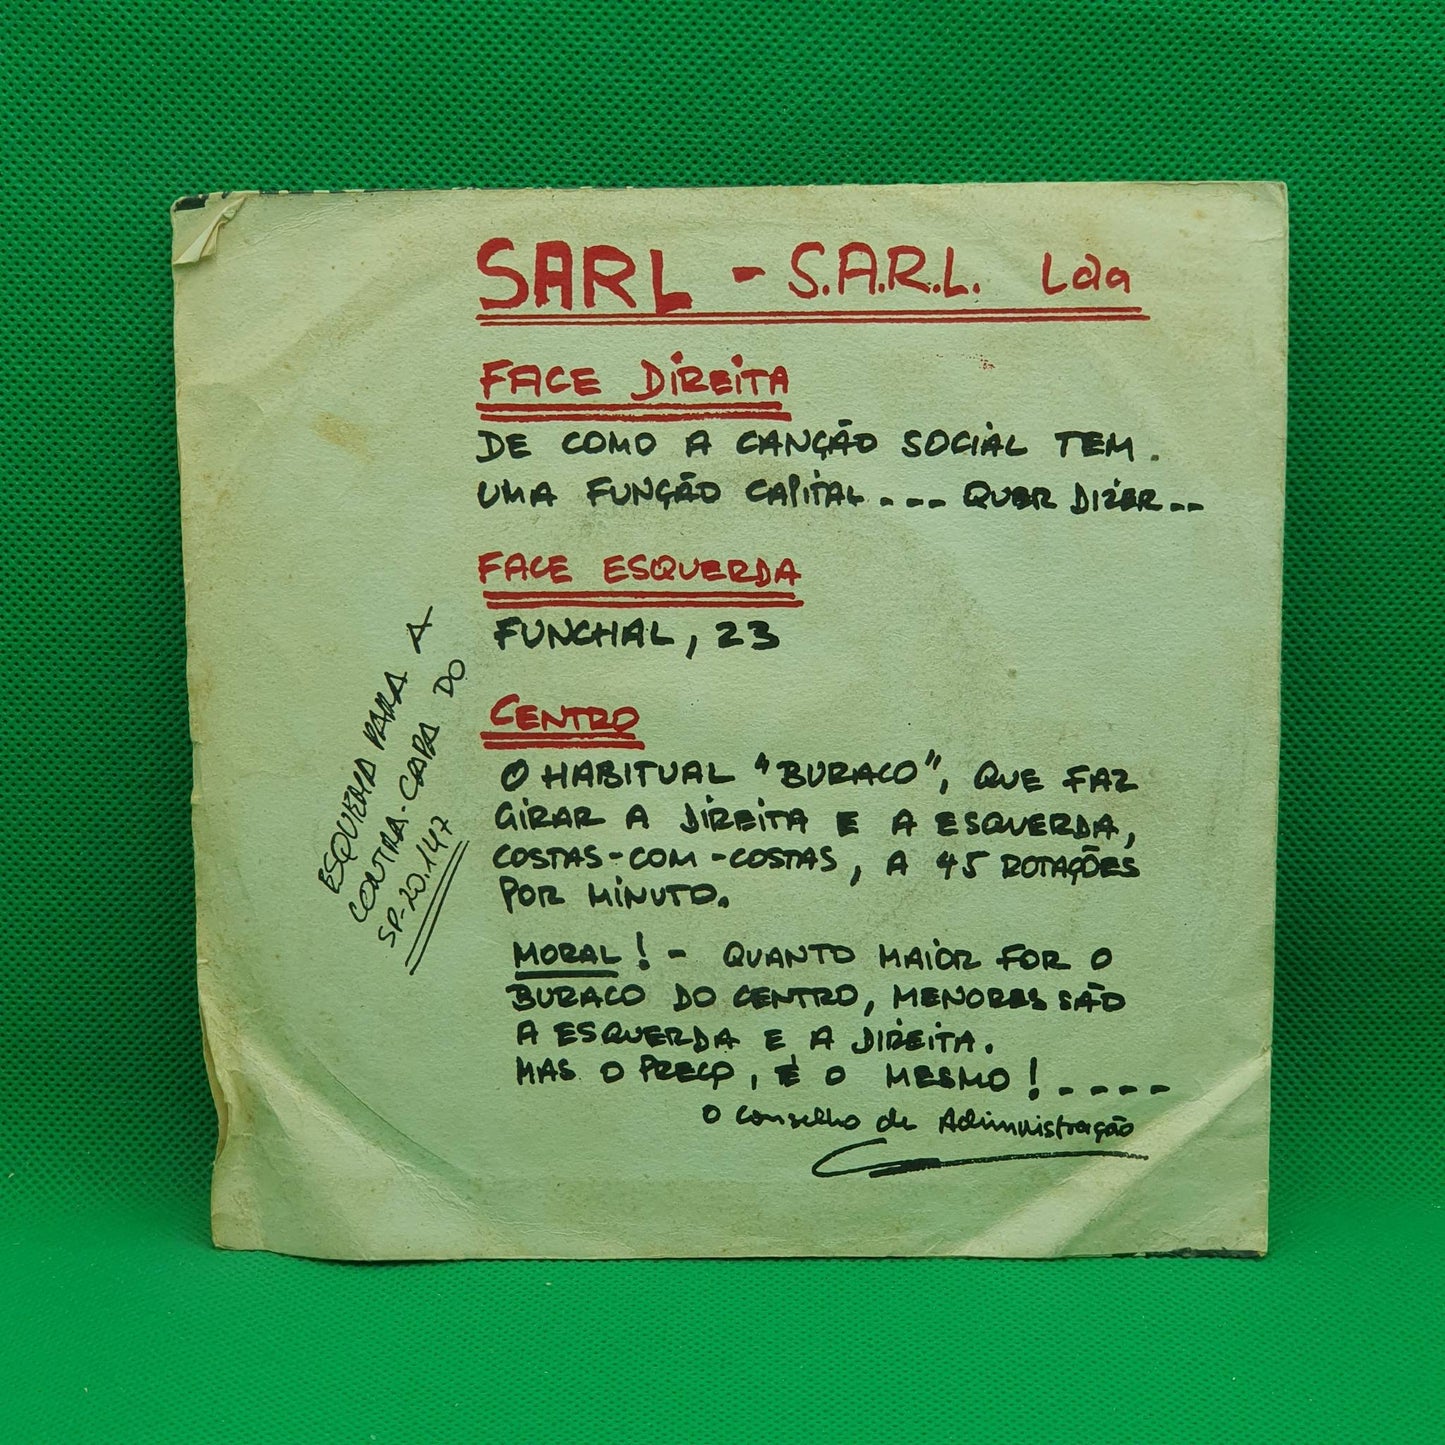 SARL - S.A.R.L. Lda
FACE DIREITA
DE COMO A CANÇÃO SOCIAL TEM.
UMA FUNÇÃO CAPITAL.... QUER DIZER...
FACE ESQUERDA
FUNCHAL, 23
CENTRO
O HABITUAL "BURACO", QUE FAZ
GIRAR A DIREITA E A ESQUERDA,
COSTAS-COM-COSTAS, A 45 ROTAÇÕES
POR MINUTO.
MORAL! - QUANTO MAIOR FOR O
BURACO DO CENTRO, MENORES SÃO
A ESQUERDA E A DIREITA.
MAS O PREÇO, É O MESMO!....
O Conselho de Administração
ESQUEMA PARA A
CONTRA-CAPA DO
SP-20.147